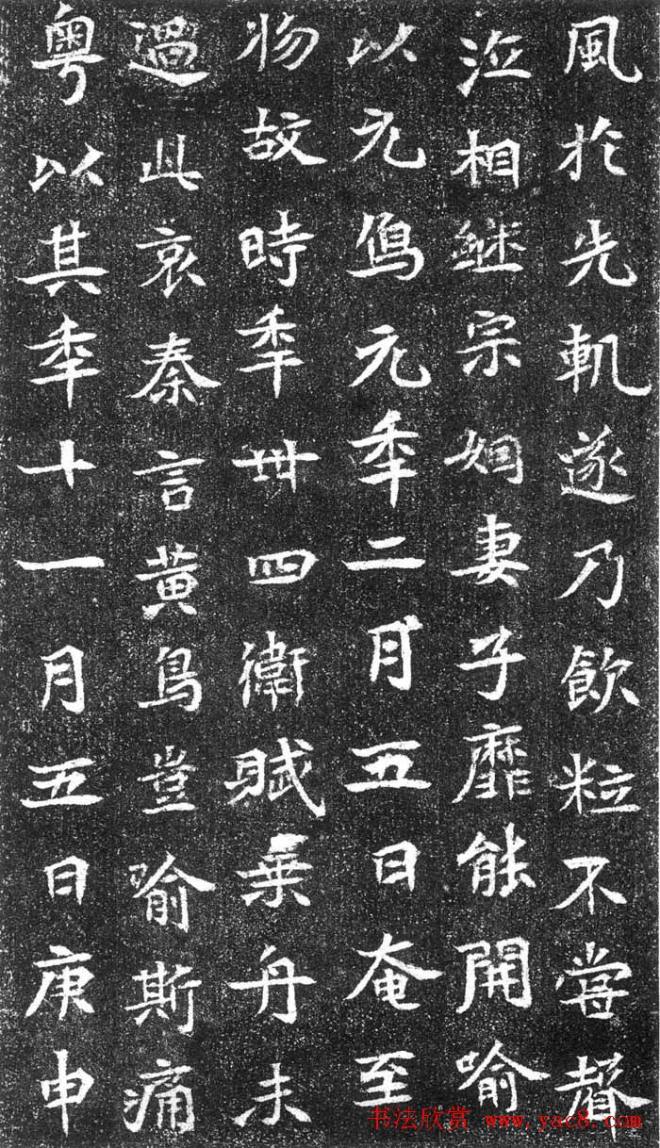 風於先軌遂乃飲粒不嘗聲
泣相継宗姻妻子靡能開喻
以元象元秊二月五日奄至
物故時秊卅四衛賦乗舟未
過此哀秦言黃鳥豈喻斯痛
粤以其秊十一月五日庚申
书法欣赏 www.yac8.com